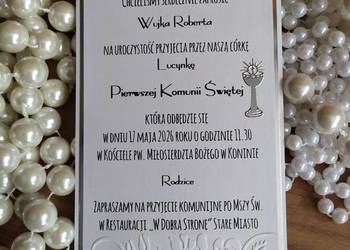 CHCIELIŚMY SERDECZNIE ZAPROSIĆ
Wujka Roberta
NA UROCZYSTOŚĆ PRZYJĘCIA PRZEZ NASZĄ CÓRKĘ
Lucynkę
Pierwszej Komunii Świętej
KTÓRA ODBĘDZIE SIĘ
W DNIU 17 MAJA 2026 ROKU O GODZINIE 11.30
W KOŚCIELE PW. MIŁOSIERDZIA BOŻEGO W KONINIE
Rodzice
ZAPRASZAMY NA PRZYJĘCIE KOMUNIJNE PO MSZY ŚW.
W RESTAURACJI „W DOBRĄ STRONĘ" STARE MIASTO